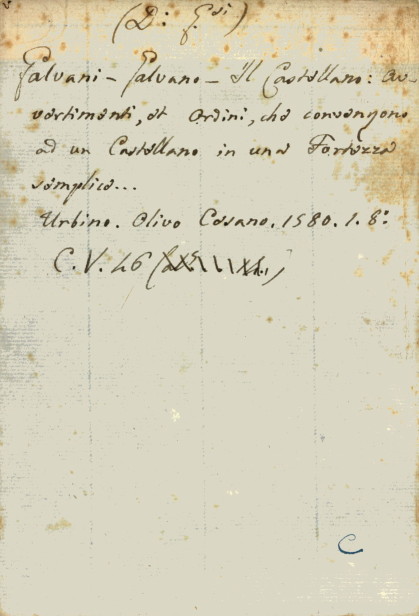 (D: G.si)
Galvani - Galvano - Il Castellano: Av-
vertimenti, et Ordini, che convengono
ad un Castellano in una Fortezza
semplice...
Urbino. Olivo Cesano. 1580. 1. 8:
C. V. 46
C